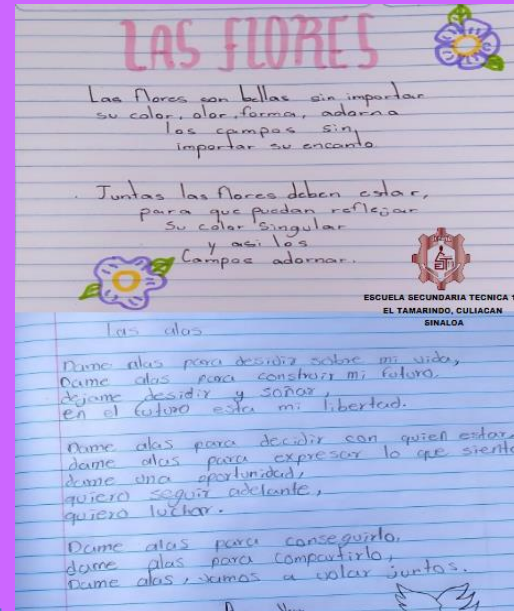 LAS FLORES
Las flores son bellas sin importar
su color, olor, forma, adorna
los campos sin
importar su encanto
Juntas las flores deben estar,
para que puedan reflejar
su color singular
y asi los
Campos adornar.
ESCUELA SECUNDARIA TECNICA 1
EL TAMARINDO, CULIACAN
SINALOA
Las alas
Dame alas para desidir sobre mi vida,
Dame alas para construir mi futuro.
dejame desidir y soñar,
en el futuro esta mi libertad.
Dame alas para decidir con quien estar,
dame alas para expresar lo que siento
dame una oportunidad,
quiero seguir adelante,
quiero luchar.
Dame alas para conseguirlo,
dame alas para compartirlo,
Dame alas, vamos a volar juntos.